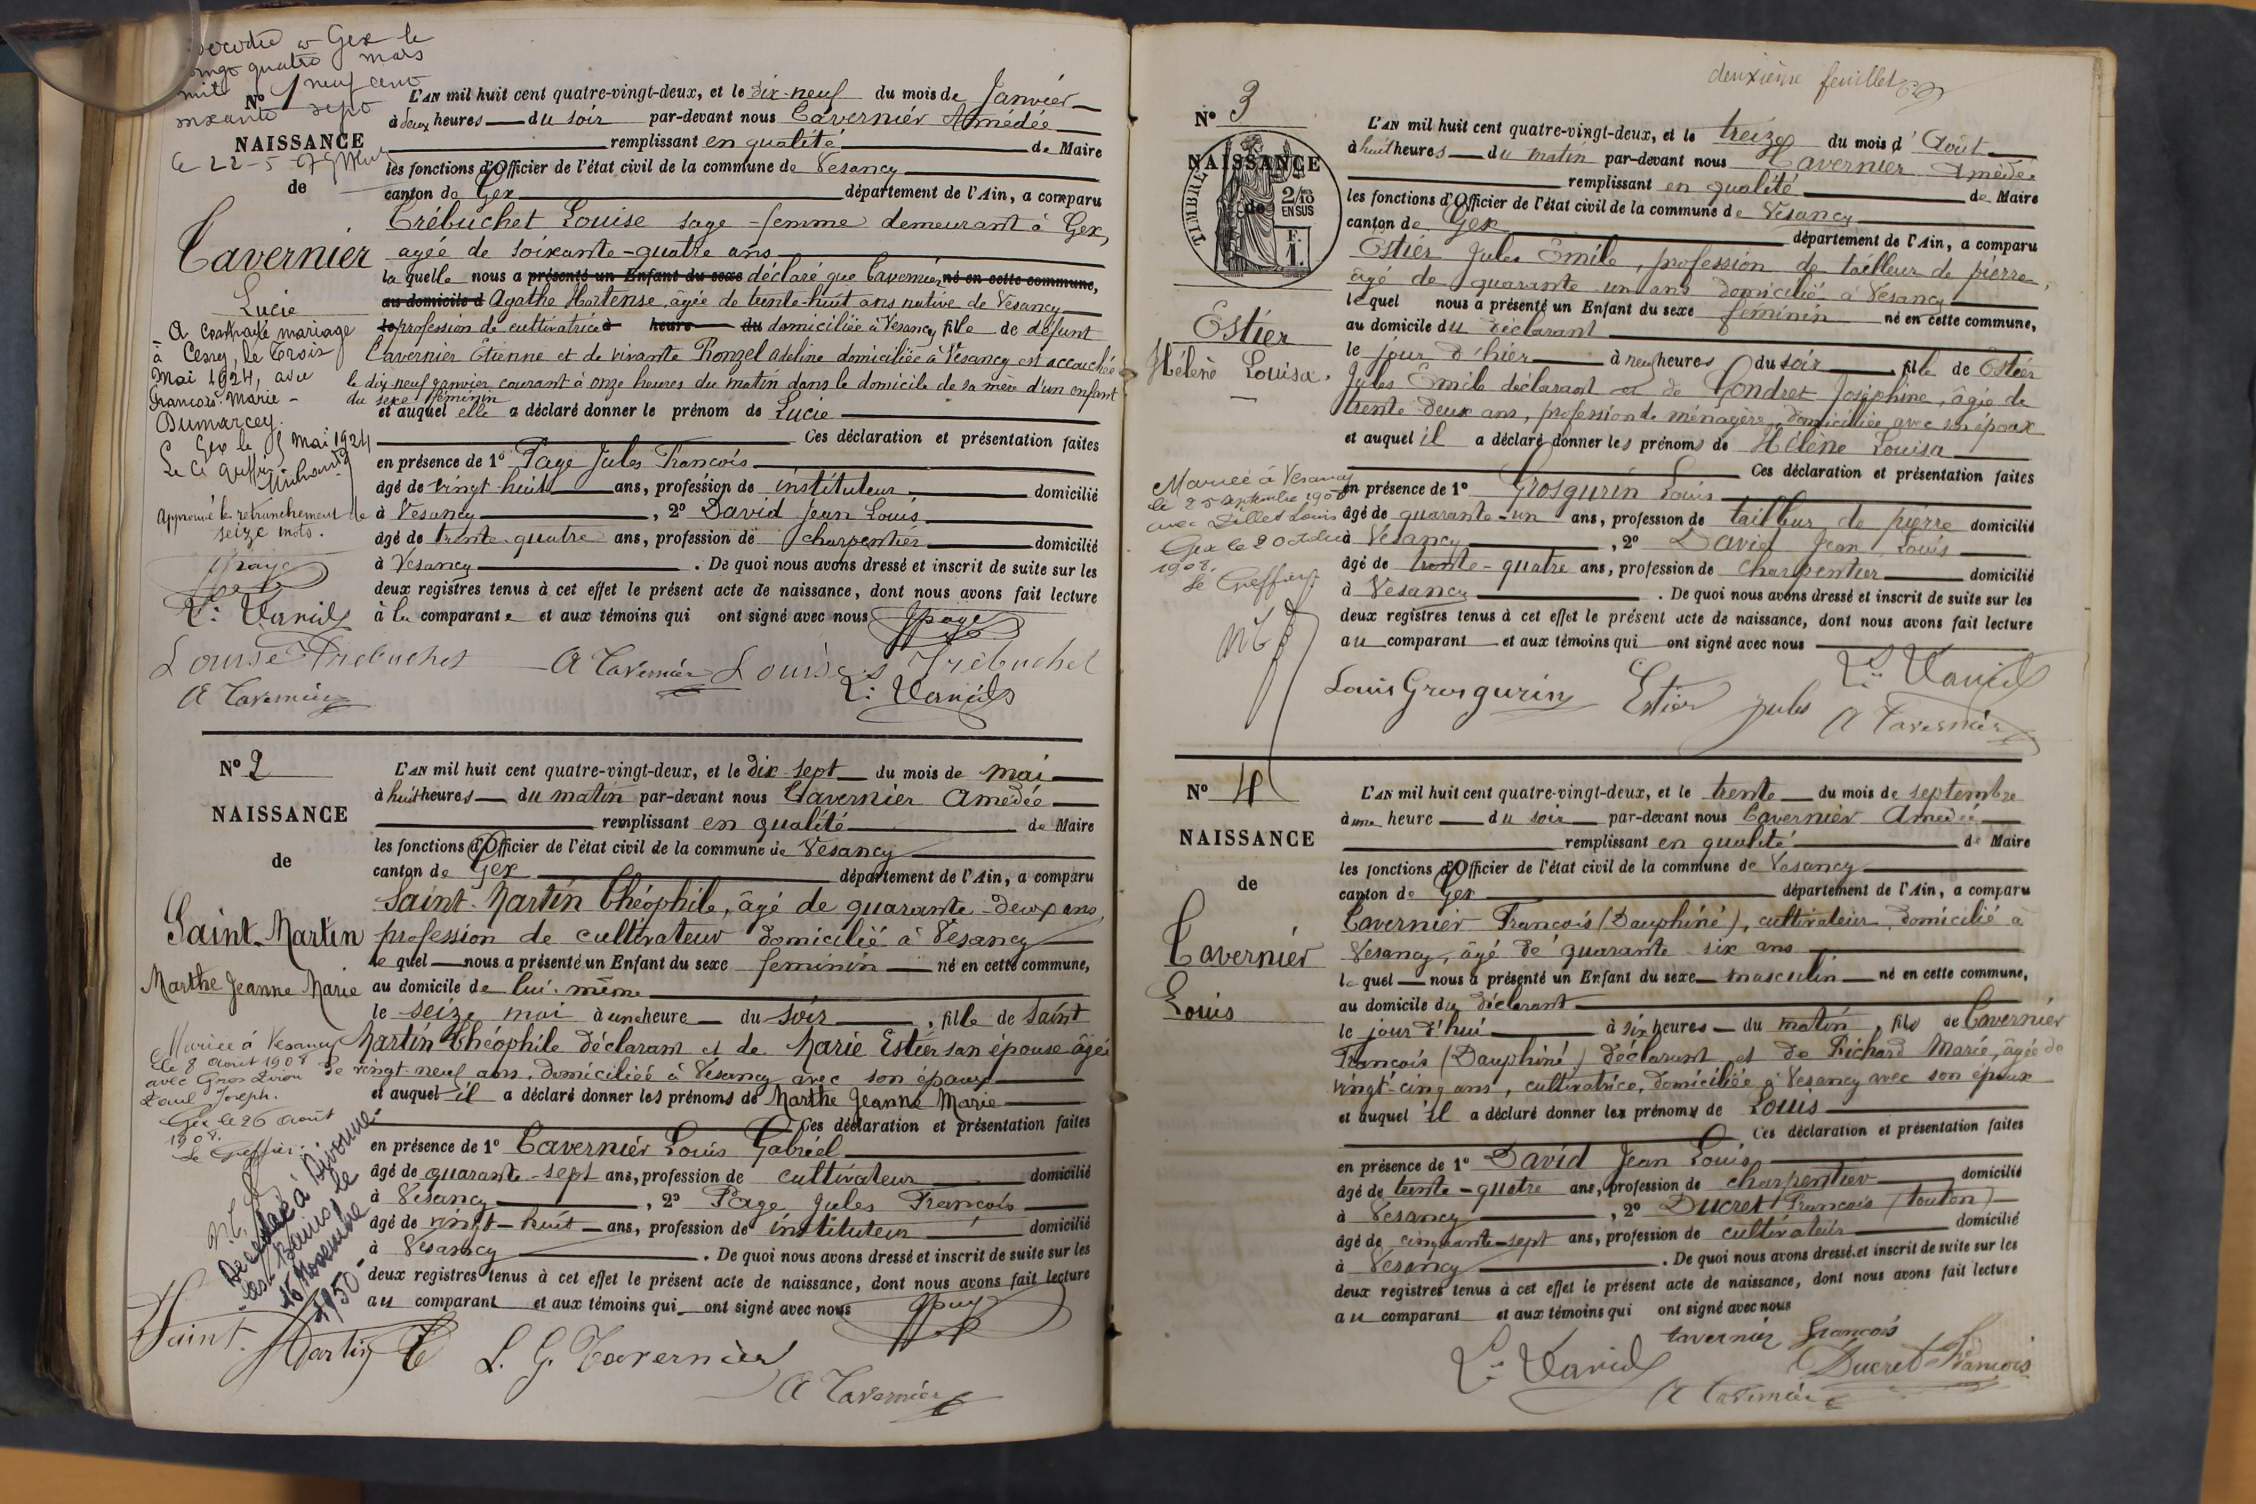 décédée à Gex le
vingt quatre mars
mil neuf cent
soixante sept
le 22-5-67
N° 1
NAISSANCE
de
Tavernier
Lucie
A contracté mariage
à Cessy, le Trois
Mai 1924, avec
François-Marie-
Dumarcey.
Gex le 5 mai 1924
Le Ct Greffier
Approuvé le retranchement de
seize mots.
JPage
L. David
L'AN mil huit cent quatre-vingt-deux, et le dix-neuf du mois de Janvier
à deux heures du soir par-devant nous Tavernier Amédée
remplissant en qualité de Maire
les fonctions d'Officier de l'état civil de la commune de Vesancy
canton de Gex département de l'Ain, a comparu
Trébuchet Louise sage-femme demeurant à Gex,
agée de soixante-quatre ans
la quelle nous a présenté un Enfant du sexe déclaré que Tavernier né en cette commune,
au domicile d Agathe Hortense, âgée de trente-huit ans native de Vesancy
le profession de cultivatrice à heure du domiciliée à Vesancy fille de défunt
Tavernier Etienne et de vivante Ronzel Adeline domiciliée à Vesancy est accouchée
le dix neuf janvier courant à onze heures du matin dans le domicile de sa mère d'un enfant
du sexe féminin
et auquel elle a déclaré donner le prénom de Lucie
Ces déclaration et présentation faites
en présence de 1° Page Jules François
âgé de vingt-huit ans, profession de instituteur domicilié
à Vesancy, 2° David Jean Louis
âgé de trente-quatre ans, profession de charpentier domicilié
à Vesancy. De quoi nous avons dressé et inscrit de suite sur les
deux registres tenus à cet effet le présent acte de naissance, dont nous avons fait lecture
à la comparante et aux témoins qui ont signé avec nous JPage
Louise Trébuchet A Tavernier Louise Trébuchet
A Tavernier L. David
N° 2
NAISSANCE
de
Saint-Martin
Marthe Jeanne Marie
Mariée à Vesancy
le 8 août 1908
avec Gros
Paul Joseph.
Gex le 26 août
1908.
Le Greffier.
Décédée à Divonne-
les-Bains, le
16 Novembre
1950
L'AN mil huit cent quatre-vingt-deux, et le dix-sept du mois de mai
à huit heures du matin par-devant nous Tavernier Amédée
remplissant en qualité de Maire
les fonctions d'Officier de l'état civil de la commune de Vesancy
canton de Gex département de l'Ain, a comparu
Saint-Martin Théophile, âgé de quarante-deux ans,
profession de cultivateur domicilié à Vesancy
le quel nous a présenté un Enfant du sexe féminin né en cette commune,
au domicile de lui-même
le seize mai à une heure du soir, fille de Saint
Martin Théophile déclarant et de Marie Estier son épouse âgée
de vingt-neuf ans, domiciliée à Vésancy avec son époux
et auquel il a déclaré donner les prénoms de Marthe Jeanne Marie
Ces déclaration et présentation faites
en présence de 1° Tavernier Louis Gabriel
âgé de quarante-sept ans, profession de cultivateur domicilié
à Vésancy, 2° Page Jules François
âgé de vingt-huit ans, profession de instituteur domicilié
à Vesancy. De quoi nous avons dressé et inscrit de suite sur les
deux registres tenus à cet effet le présent acte de naissance, dont nous avons fait lecture
au comparant et aux témoins qui ont signé avec nous JPage
Saint-Martin T L. G. Tavernier
A Tavernier
deuxième feuillet
N° 3
NAISSANCE
de
TIMBRE
2/10
EN SUS
F.
1.
Estier
Hélène Louisa.
Mariée à Vesancy
le 25 septembre 1908
avec Dillet Louis
Gex le 2 Octobre
1908.
Le Greffier
L'AN mil huit cent quatre-vingt-deux, et le treize du mois d'Août
à huit heures du matin par-devant nous Tavernier Amédée
remplissant en qualité de Maire
les fonctions d'Officier de l'état civil de la commune de Vésancy
canton de Gex département de l'Ain, a comparu
Estier Jules Emile, profession de tailleur de pierre,
âgé de quarante-un ans domicilié à Vésancy
le quel nous a présenté un Enfant du sexe féminin né en cette commune,
au domicile du déclarant
le jour d'hier à neuf heures du soir, fille de Estier
Jules Emile déclarant et de Gondret Joséphine, âgée de
trente-deux ans, profession de ménagère, domiciliée avec son époux
et auquel il a déclaré donner les prénoms de Hélène Louisa
Ces déclaration et présentation faites
en présence de 1° Grosgurin Louis
âgé de quarante-un ans, profession de tailleur de pierre domicilié
à Vésancy, 2° David Jean Louis
âgé de trente-quatre ans, profession de charpentier domicilié
à Vesancy. De quoi nous avons dressé et inscrit de suite sur les
deux registres tenus à cet effet le présent acte de naissance, dont nous avons fait lecture
au comparant et aux témoins qui ont signé avec nous
L. David
Louis Grosgurin Estier jules A Tavernier
N° 4
NAISSANCE
de
Tavernier
Louis
L'AN mil huit cent quatre-vingt-deux, et le trente du mois de septembre
à une heure du soir par-devant nous Tavernier Amédée
remplissant en qualité de Maire
les fonctions d'Officier de l'état civil de la commune de Vesancy
canton de Gex département de l'Ain, a comparu
Tavernier François (Dauphiné), cultivateur, domicilié à
Vesancy, âgé de quarante-six ans
le quel nous a présenté un Enfant du sexe masculin né en cette commune,
au domicile du déclarant
le jour d'hui à six heures du matin, fils de Tavernier
François (Dauphiné) déclarant et de Richard Marie, âgée de
vingt-cinq ans, cultivatrice, domiciliée à Vesancy avec son époux
et auquel il a déclaré donner les prénoms de Louis
Ces déclaration et présentation faites
en présence de 1° David Jean Louis
âgé de trente-quatre ans, profession de charpentier domicilié
à Vésancy, 2° Ducret François (touton)
âgé de cinquante-sept ans, profession de cultivateur domicilié
à Vesancy. De quoi nous avons dressé et inscrit de suite sur les
deux registres tenus à cet effet le présent acte de naissance, dont nous avons fait lecture
au comparant et aux témoins qui ont signé avec nous
tavernier françois
L. David Ducret François
A Tavernier